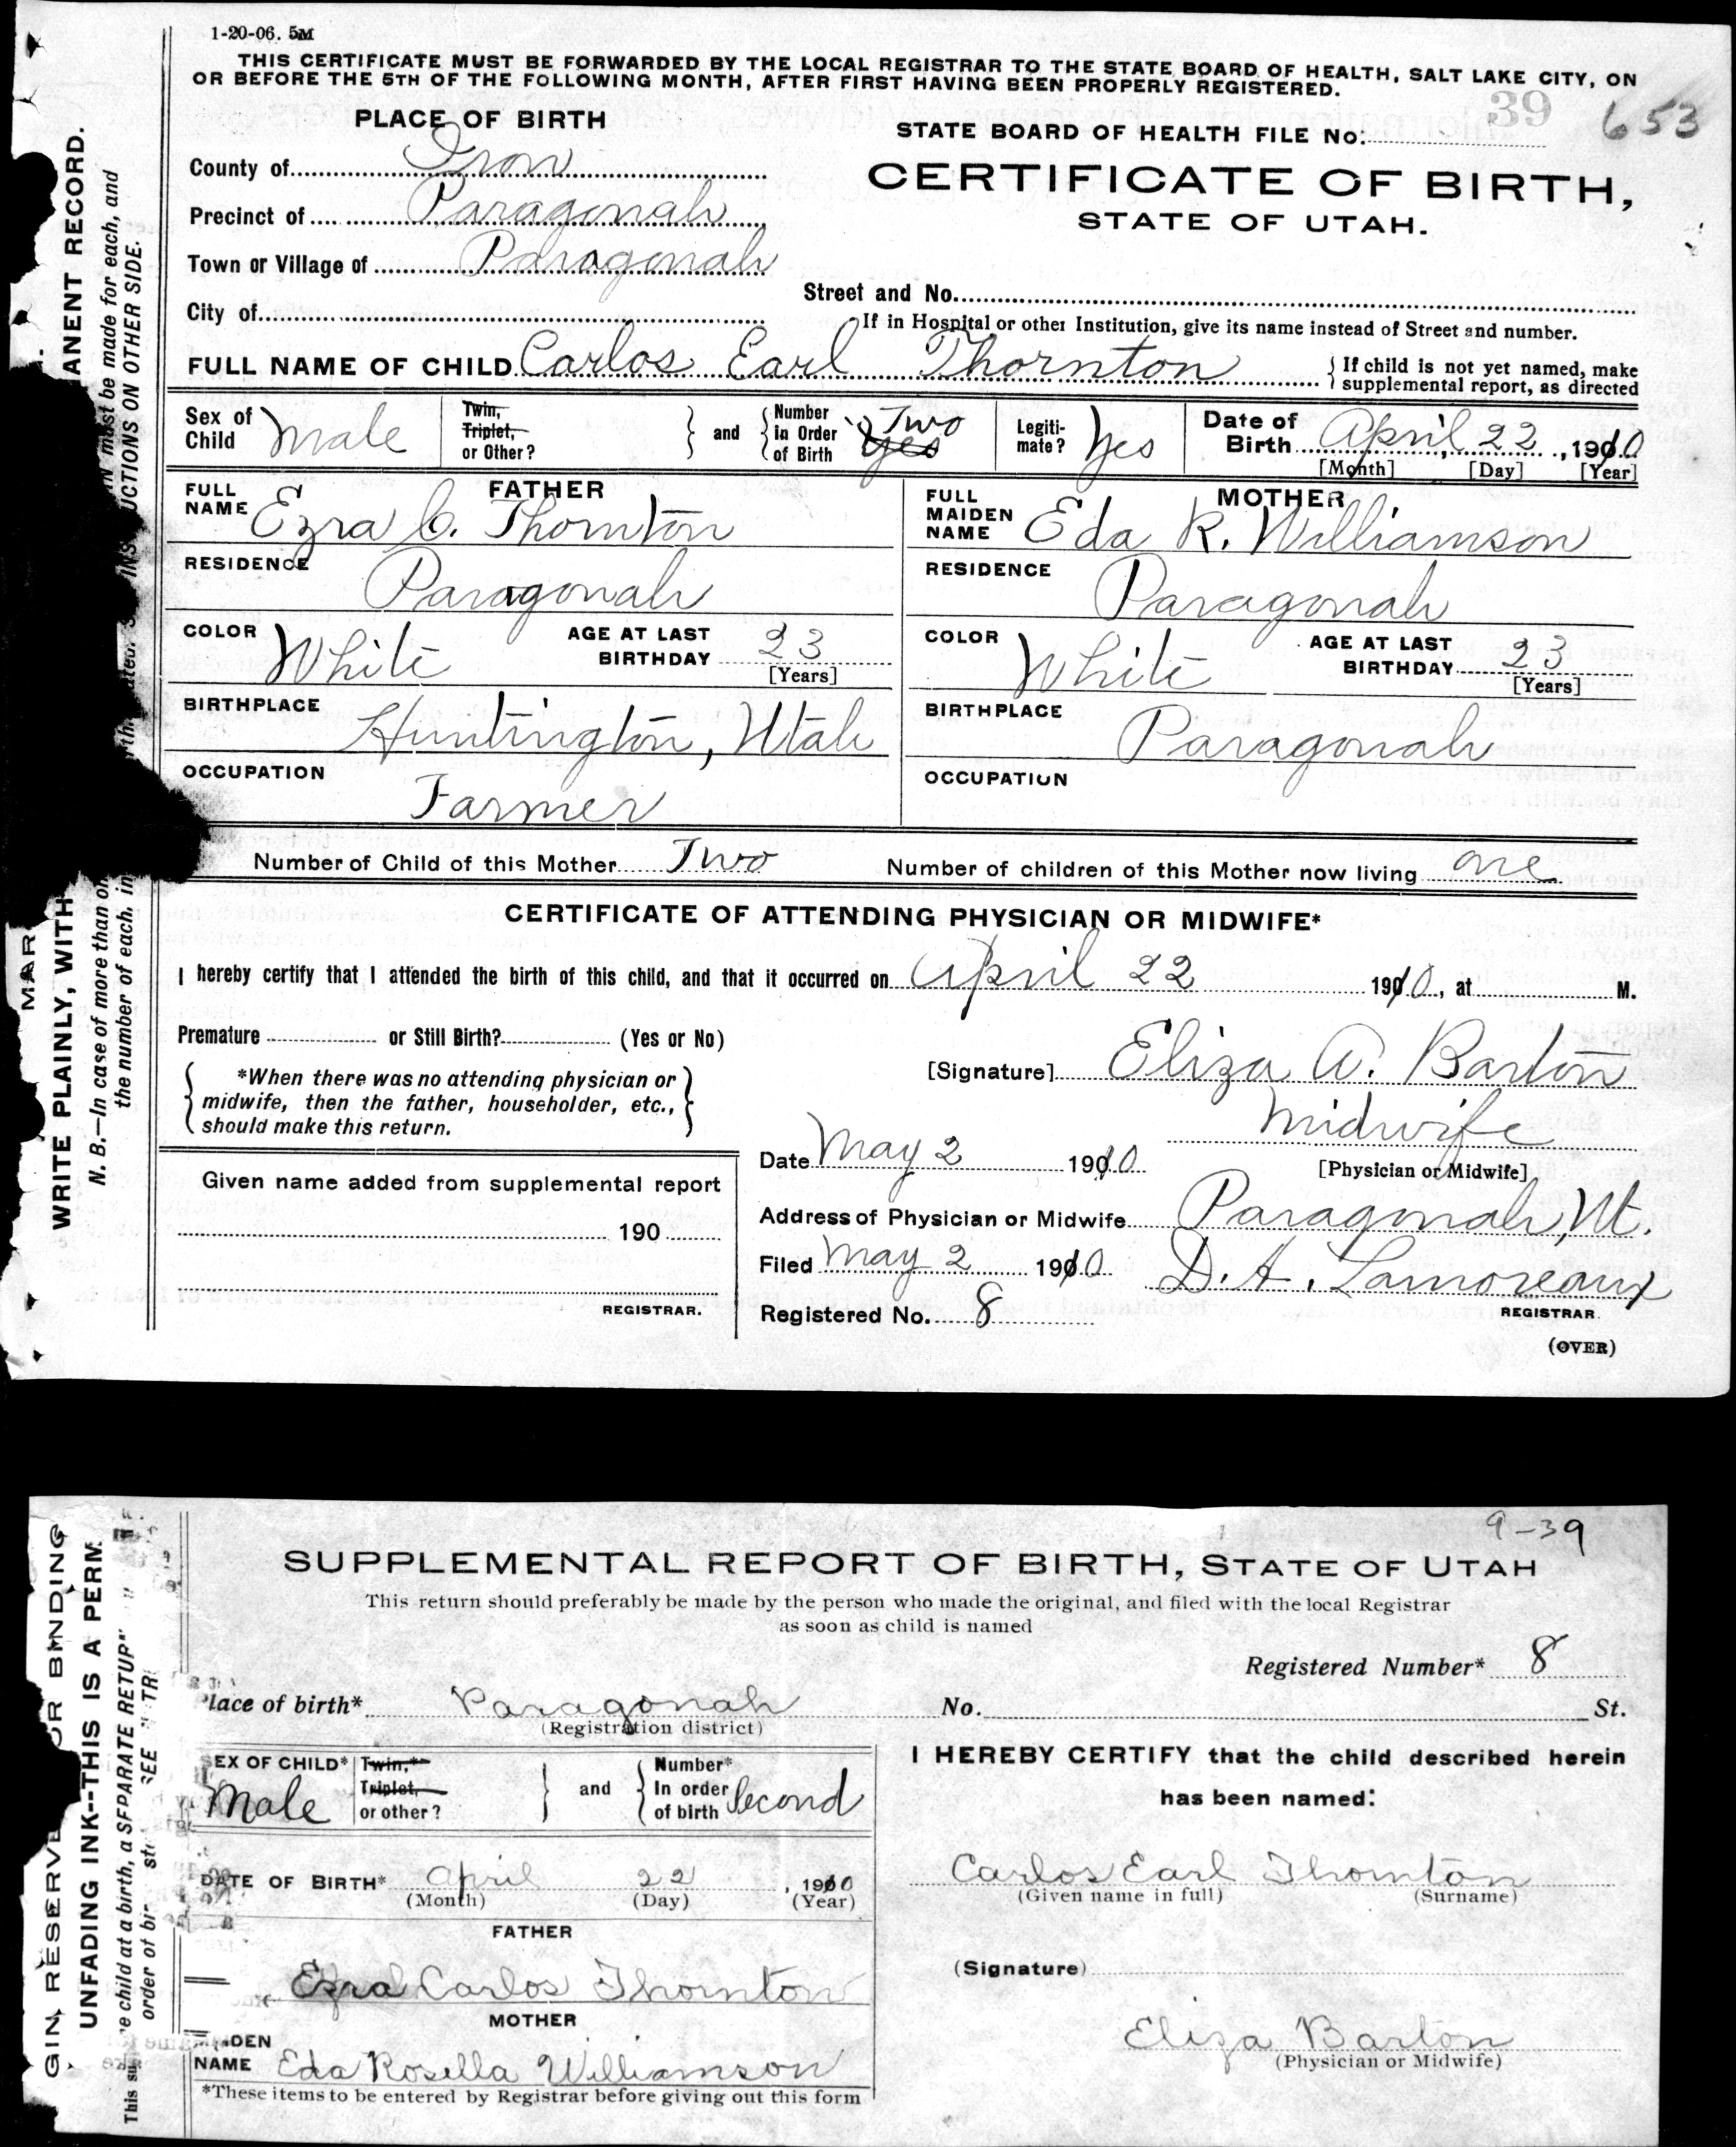 1-20-06. 5M
THIS CERTIFICATE MUST BE FORWARDED BY THE LOCAL REGISTRAR TO THE STATE BOARD OF HEALTH, SALT LAKE CITY, ON
OR BEFORE THE 5TH OF THE FOLLOWING MONTH, AFTER FIRST HAVING BEEN PROPERLY REGISTERED.
39 653
PLACE OF BIRTH
STATE BOARD OF HEALTH FILE No:
County of Iron
CERTIFICATE OF BIRTH,
Precinct of Paragonah
STATE OF UTAH.
Town or Village of Paragonah
Street and No.
City of
If in Hospital or other Institution, give its name instead of Street and number.
FULL NAME OF CHILD Carlos Earl Thornton
{ If child is not yet named, make
supplemental report, as directed
Sex of Child Male
Twin,
Triplet,
or Other?
and
Number in Order of Birth Two Yes
Legiti-mate? Yes
Date of Birth April 22, 1910
[Month] [Day] [Year]
FATHER
FULL NAME Ezra C. Thornton
RESIDENCE Paragonah
COLOR White
AGE AT LAST BIRTHDAY 23
[Years]
BIRTHPLACE Huntington, Utah
OCCUPATION Farmer
MOTHER
FULL MAIDEN NAME Eda R. Williamson
RESIDENCE Paragonah
COLOR White
AGE AT LAST BIRTHDAY 23
[Years]
BIRTHPLACE Paragonah
OCCUPATION
Number of Child of this Mother Two
Number of children of this Mother now living one
CERTIFICATE OF ATTENDING PHYSICIAN OR MIDWIFE*
I hereby certify that I attended the birth of this child, and that it occurred on April 22 1910, at M.
Premature or Still Birth? (Yes or No)
*When there was no attending physician or
midwife, then the father, householder, etc.,
should make this return.
[Signature] Eliza A. Barton
Midwife
[Physician or Midwife]
Date May 2 1910
Address of Physician or Midwife Paragonah, Ut.
Filed May 2 1910 D. A. Lamoreaux
REGISTRAR.
Registered No. 8
(OVER)
Given name added from supplemental report
190
REGISTRAR.
MAR
WRITE PLAINLY, WITH
ANENT RECORD.
N. B.—In case of more than on
must be made for each, and
the number of each, in
INSTRUCTIONS ON OTHER SIDE.
9-39
SUPPLEMENTAL REPORT OF BIRTH, STATE OF UTAH
This return should preferably be made by the person who made the original, and filed with the local Registrar
as soon as child is named
Registered Number* 8
Place of birth* Paragonah
(Registration district)
No. St.
SEX OF CHILD* Male
Twin,**
Triplet,
or other?
and
Number* In order of birth Second
DATE OF BIRTH* April 22, 1910
(Month) (Day) (Year)
FATHER
Ezra Carlos Thornton
MOTHER
MAIDEN NAME Eda Rosella Williamson
*These items to be entered by Registrar before giving out this form
I HEREBY CERTIFY that the child described herein
has been named:
Carlos Earl Thornton
(Given name in full) (Surname)
(Signature)
Eliza Barton
(Physician or Midwife)
GIN RESERVE OR BINDING
UNFADING INK--THIS IS A PERM
e child at a birth, a SEPARATE RETUR
order of bi
This su